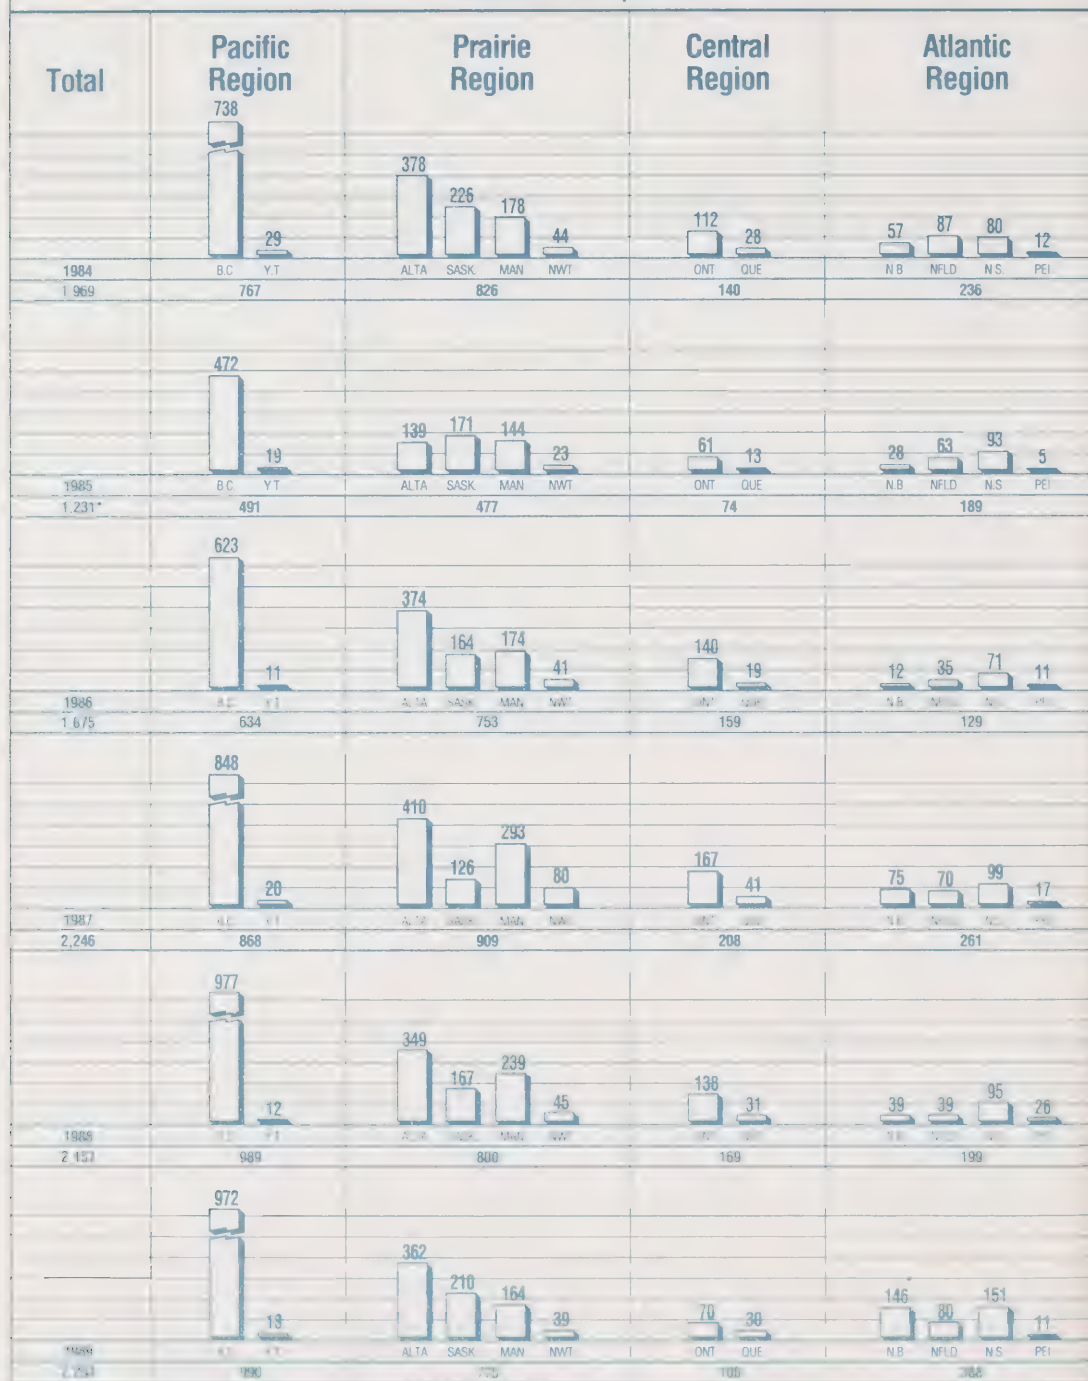 Total
Pacific Region
Prairie Region
Central Region
Atlantic Region
738 29 378 226 178 44 112 28 57 87 80 12
1984 B.C. Y.T. ALTA SASK. MAN NWT ONT QUE N.B NFLD N.S. PEI
1 969 767 826 140 236
472 19 139 171 144 23 61 13 28 63 93 5
1985 B.C. Y.T. ALTA SASK. MAN NWT ONT QUE N.B NFLD N.S. PEI
1,231* 491 477 74 189
623 11 374 164 174 41 140 19 12 35 71 11
1986 B.C. Y.T. ALTA SASK MAN NWT N.B.
1 675 634 753 159 129
848 20 410 126 293 80 167 41 75 70 99 17
1987 MAN ONT
2,246 868 909 208 261
977 12 349 167 239 45 138 31 39 39 95 26
1988 Y.T.
2 157 989 800 169 199
972 362 210 164 39 70 30 146 80 151 11
Y.T. ALTA SASK. MAN NWT ONT QUE N.B NFLD N.S PEI